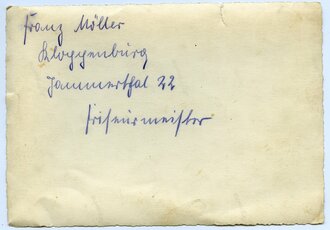 Franz Möller
Kloppenburg
Jammerthal 22
Friseurmeister